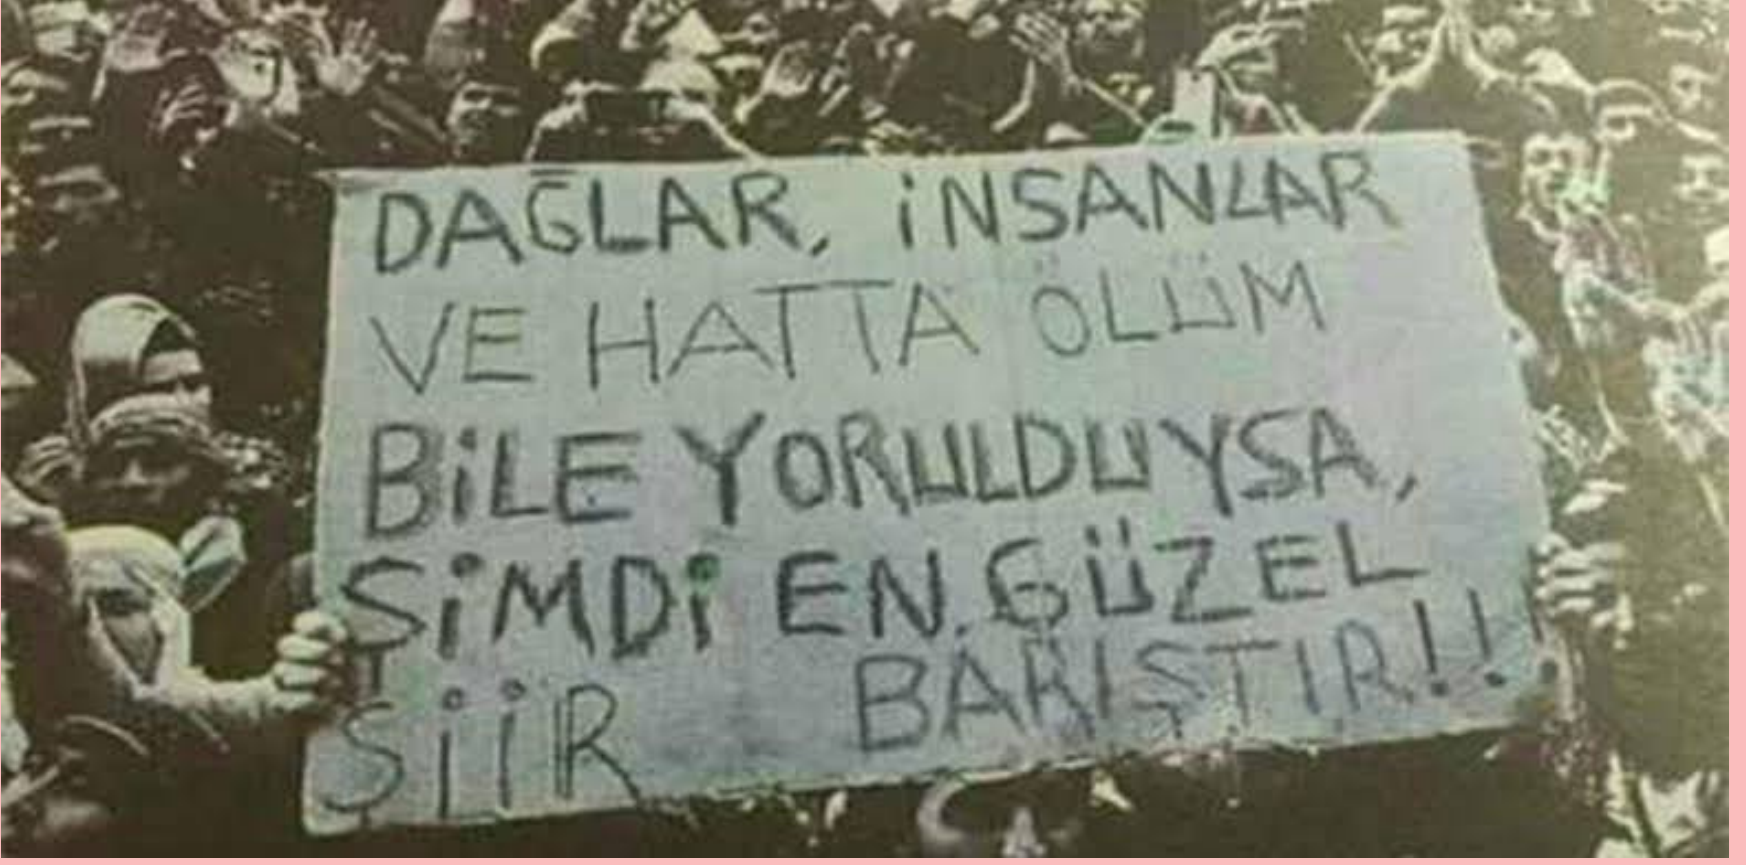 DAĞLAR, İNSANLAR
VE HATTA ÖLÜM
BİLE YORULDUYSA,
ŞİMDİ EN GÜZEL
ŞİİR BARIŞTIR!!!